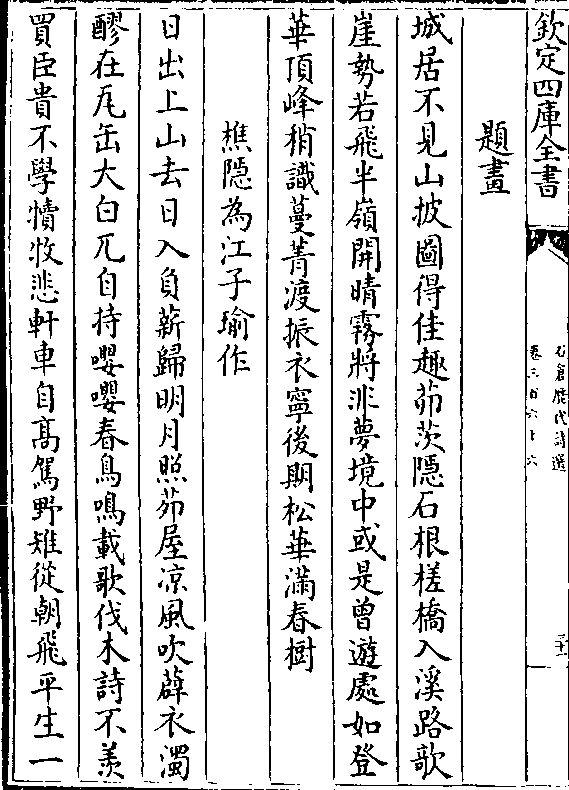 欽定四庫全書
石倉歷代詩選
卷三百六十六
題畫
城居不見山披圖得佳趣茆茨隱石根槎橋入溪路歌
崖勢若飛半嶺開晴霧將非夢境中或是曾遊處如登
華頂峰稍識蔓菁渡振衣寧後期松華滿春樹
樵隱為江子瑜作
日出上山去日入負薪歸明月照茆屋凉風吹薜衣濁
醪在瓦缶大白兀自持嚶嚶春鳥鳴載歌伐木詩不羨
買臣貴不學犢牧悲軒車自髙駕野雉從朝飛平生一